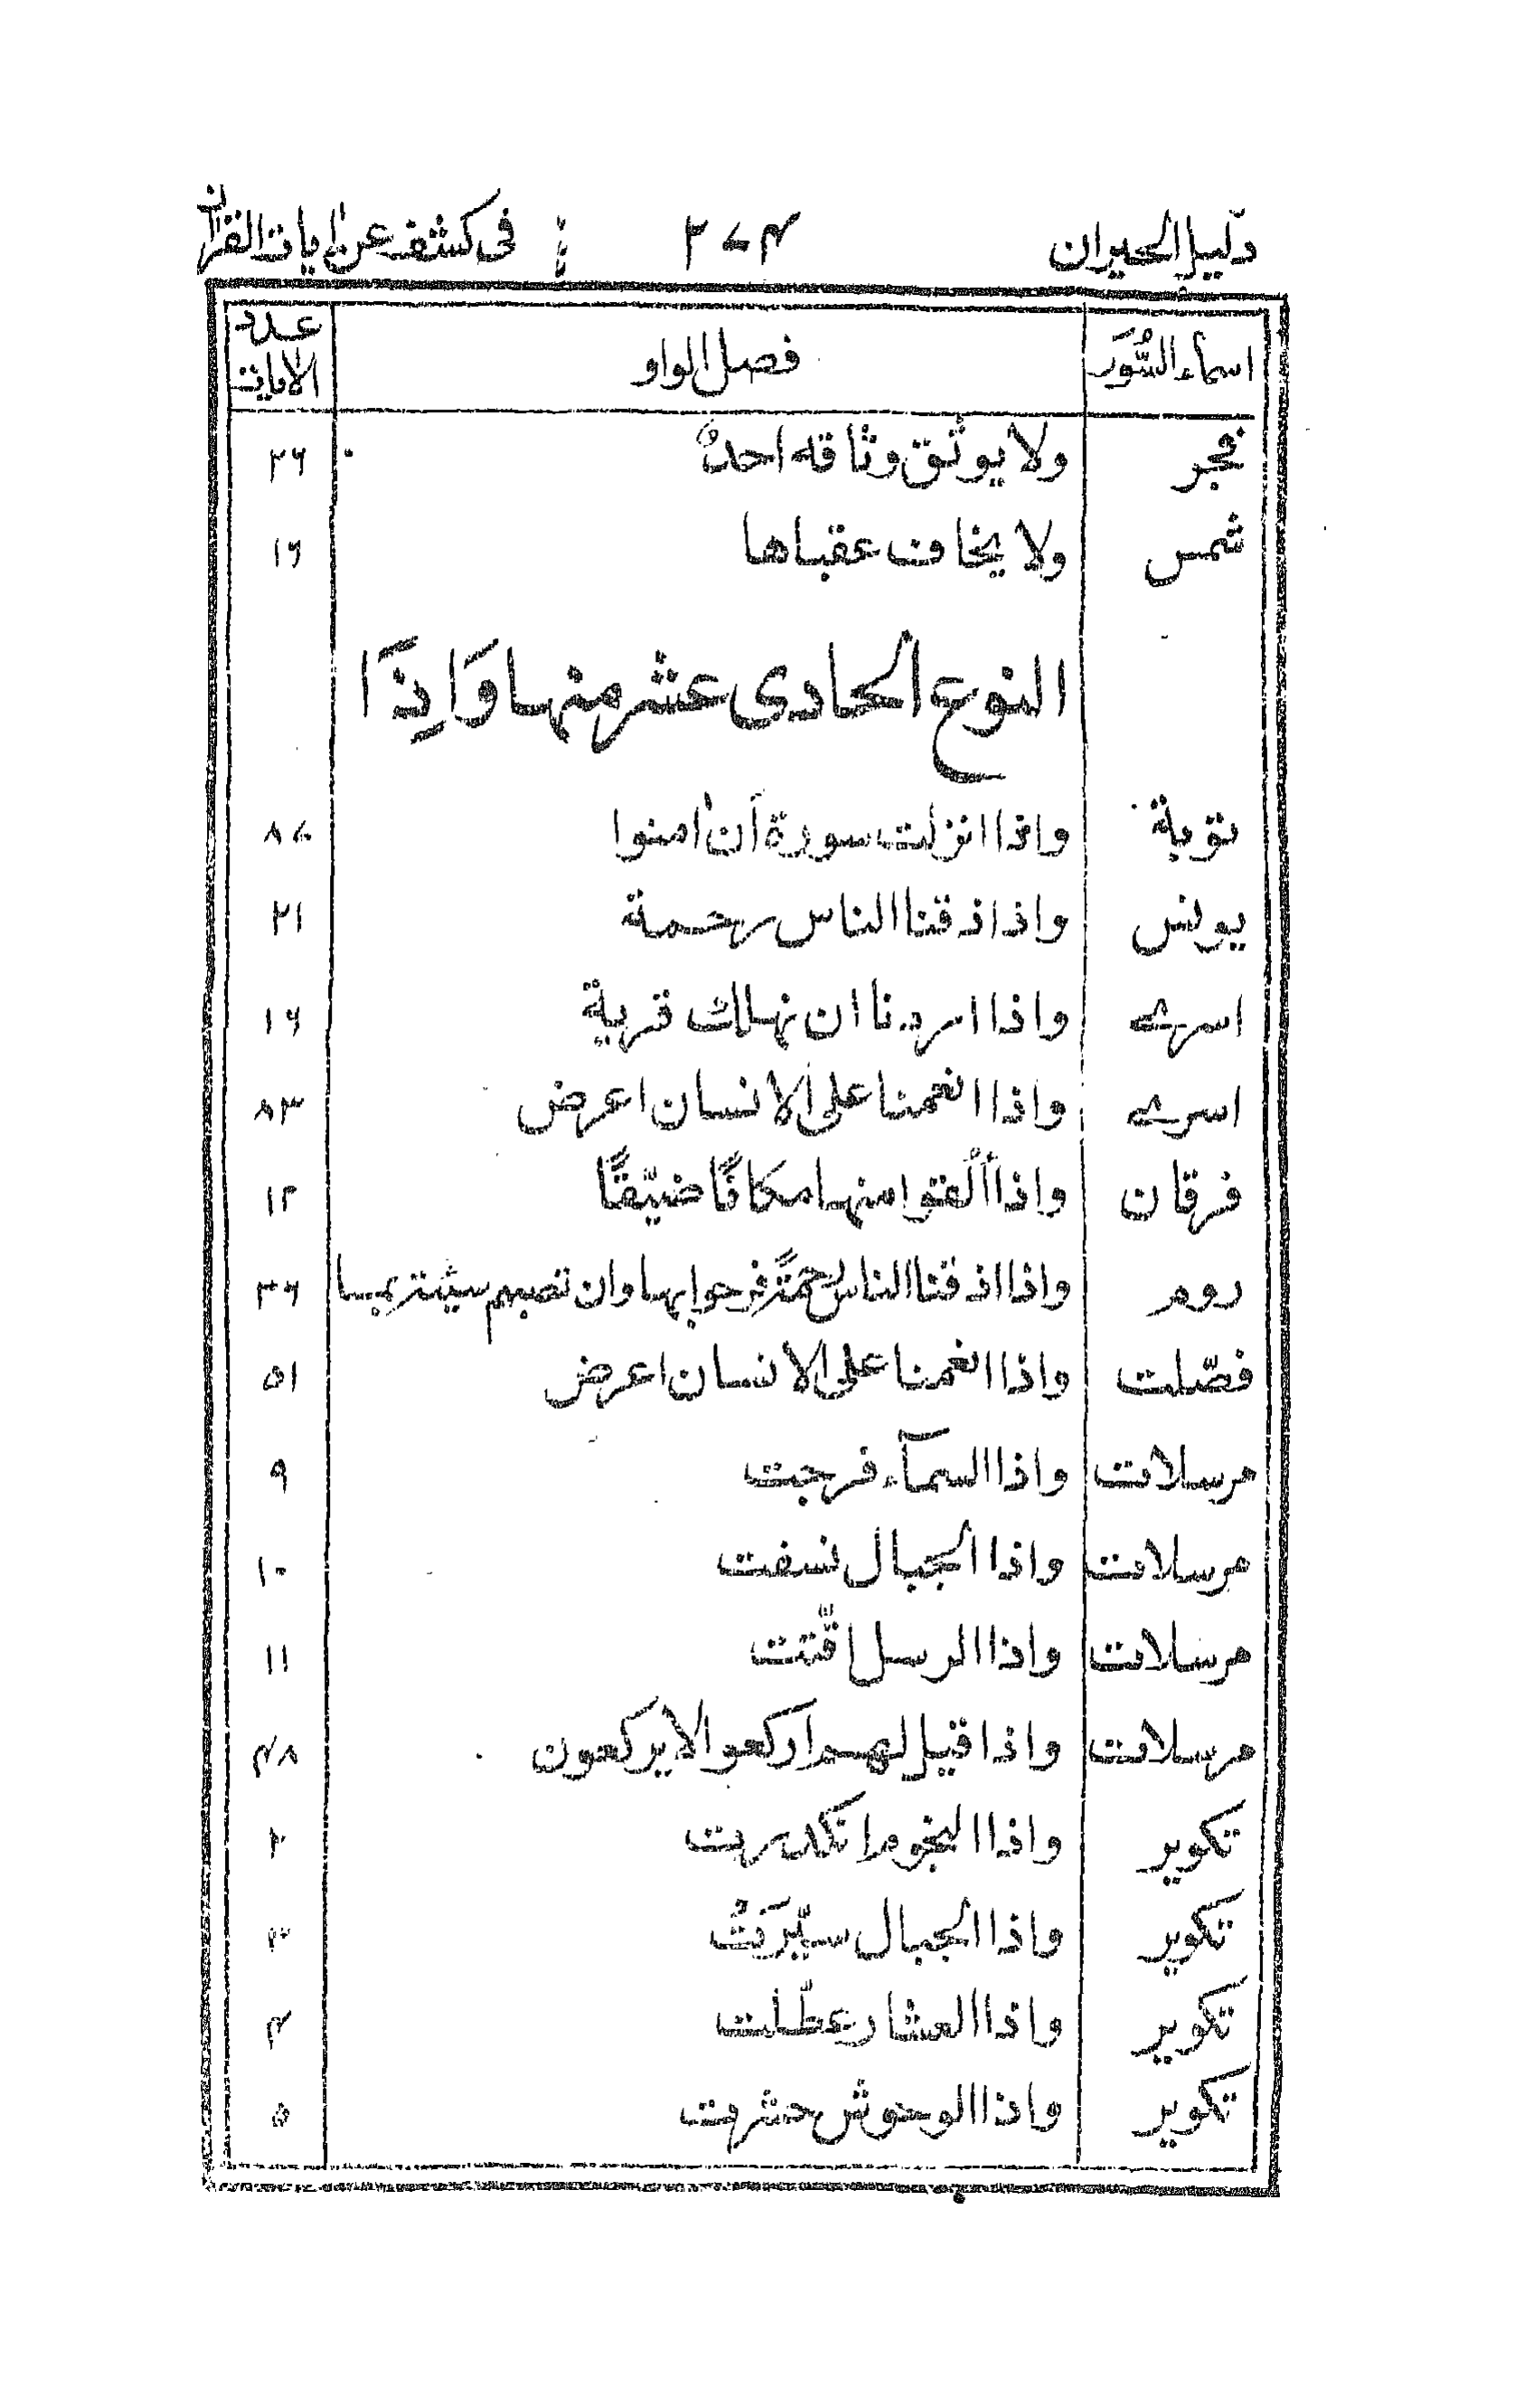 دليل الحيران ۲۷۴ فى كشف عن اٰيات القراٰن
اسماء السُّوَر فصل الواو عدد الاٰيات
فجر ولا يوثق وثاقه احدٌ ۲۶
شمس ولا يخاف عقباها ۱۶
النوع الحادى عشر منها وَاِذَا
توبة واذا انزلت سورة أن اٰمنوا ۸۷
يونس واذا اذقنا الناس رحمة ۲۱
اسرے واذا اردنا ان نهلك قرية ۱۶
اسرے واذا انعمنا على الانسان اعرض ۸۳
فرقان واذا أُلقوا منها مكانًا ضيّقًا ۱۲
روم واذا اذقنا الناس رحمةً فرحوا بها وان تصبهم سيئة بما ۳۶
فصّلت واذا انعمنا على الانسان اعرض ۵۱
مرسلات واذا السمآء فرجت ۹
مرسلات واذا الجبال نسفت ۱۰
مرسلات واذا الرسل اقّتت ۱۱
مرسلات واذا قيل لهم اركعوا لا يركعون ۴۸
تكوير واذا النجوم انكدرت ۲
تكوير واذا الجبال سيّرَتْ ۳
تكوير واذا العشار عطّلت ۴
تكوير واذا الوحوش حشرت ۵